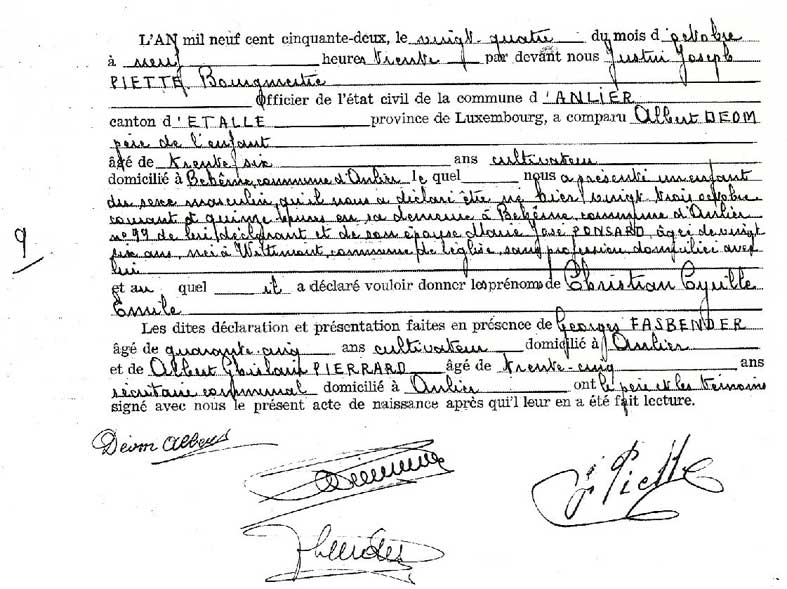 L'AN mil neuf cent cinquante-deux, le vingt-quatre du mois d'octobre
à neuf heures trente par devant nous Justin Joseph
PIETTE, Bourgmestre
Officier de l'état civil de la commune d'ANLIER
canton d'ETALLE province de Luxembourg, a comparu Albert DEOM
père de l'enfant
âgé de trente six ans cultivateur
domicilié à Behême, commune d'Anlier le quel nous a présenté un enfant
du sexe masculin, qu'il nous a déclaré être né hier, vingt trois octobre
courant à quinze heures en sa demeure à Behême, commune d'Anlier
n° 99 de lui déclarant et de son épouse Marie José PONSARD, âgée de vingt
six ans, née à Wittimont, commune de Léglise, sans profession, domiciliée avec
lui
et au quel il a déclaré vouloir donner les prénoms de Christian Cyrille
Emile
Les dites déclaration et présentation faites en présence de Georges FASBENDER
âgé de quarante-cinq ans cultivateur domicilié à Anlier
et de Albert Ghislain PIERRARD âgé de trente-cinq ans
secrétaire communal domicilié à Anlier ont le père et les témoins
signé avec nous le présent acte de naissance après qu'il leur en a été fait lecture.
9
Déom Albert
J Piette